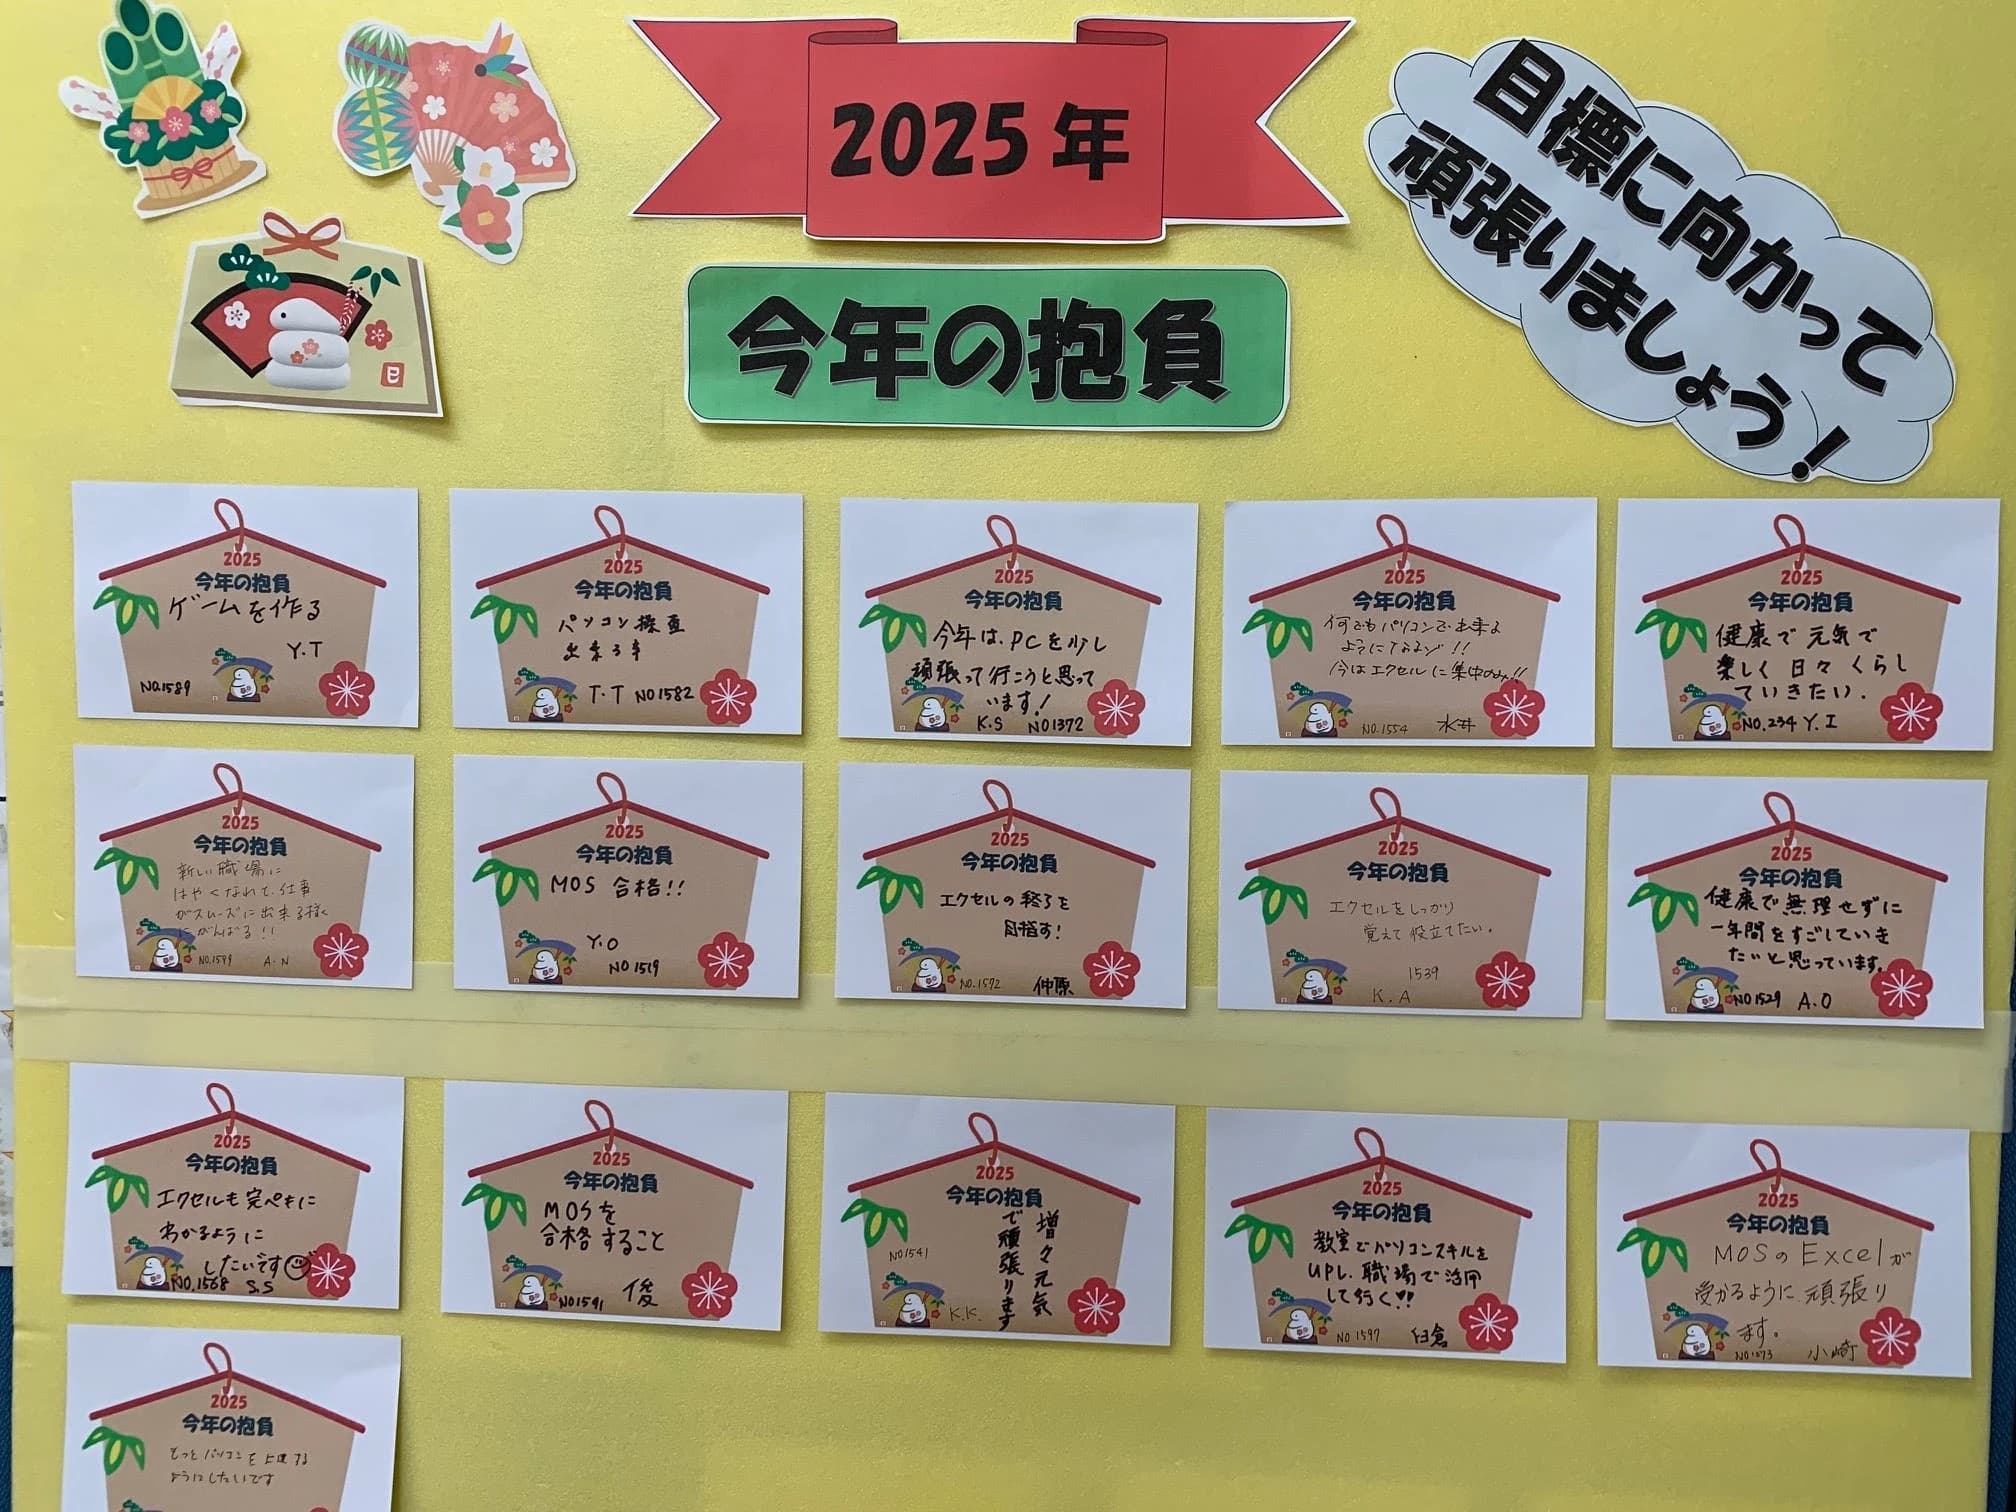 2025年
今年の抱負
目標に向かって
頑張りましょう!
巳
2025
今年の抱負
ゲームを作る
Y.T
NO.1589
2025
今年の抱負
パソコン操
出来る事
T.T NO1582
2025
今年の抱負
今年は、PCを少し
頑張って行こうと思って
います!
K.S NO1372
2025
今年の抱負
何でもパソコンで出来る
ようになるゾ!!
今はエクセルに集中のみ!!
NO.1554 水井
2025
今年の抱負
健康で元気で
楽しく日々くらし
ていきたい.
NO.234 Y.I
2025
今年の抱負
新しい職場に
はやくなれて、仕事
がスムーズに出来る様
にがんばる!!
A.N
2025
今年の抱負
MOS 合格!!
Y.O
NO 1519
2025
今年の抱負
エクセルの終了を
目指す!
NO.1572 仲原
2025
今年の抱負
エクセルをしっかり
覚えて役立てたい。
1539
K.A
2025
今年の抱負
健康で無理せずに
一年間をすごしていき
たいと思っています。
NO1529 A.O
2025
今年の抱負
エクセルも完ペキに
わかるように
したいです
NO.1568 S.S
2025
今年の抱負
MOSを
合格すること
NO1541 俊
2025
今年の抱負
増々元気
で頑張ります
NO1541
K.K.
2025
今年の抱負
教室でパソコンスキルを
UPし、職場で活用
して行く!!
NO 1597 臼倉
2025
今年の抱負
MOSのExcelが
受かるように頑張り
ます。
小崎
2025
今年の抱負
もっとパソコンを上達する
ようにしたいです